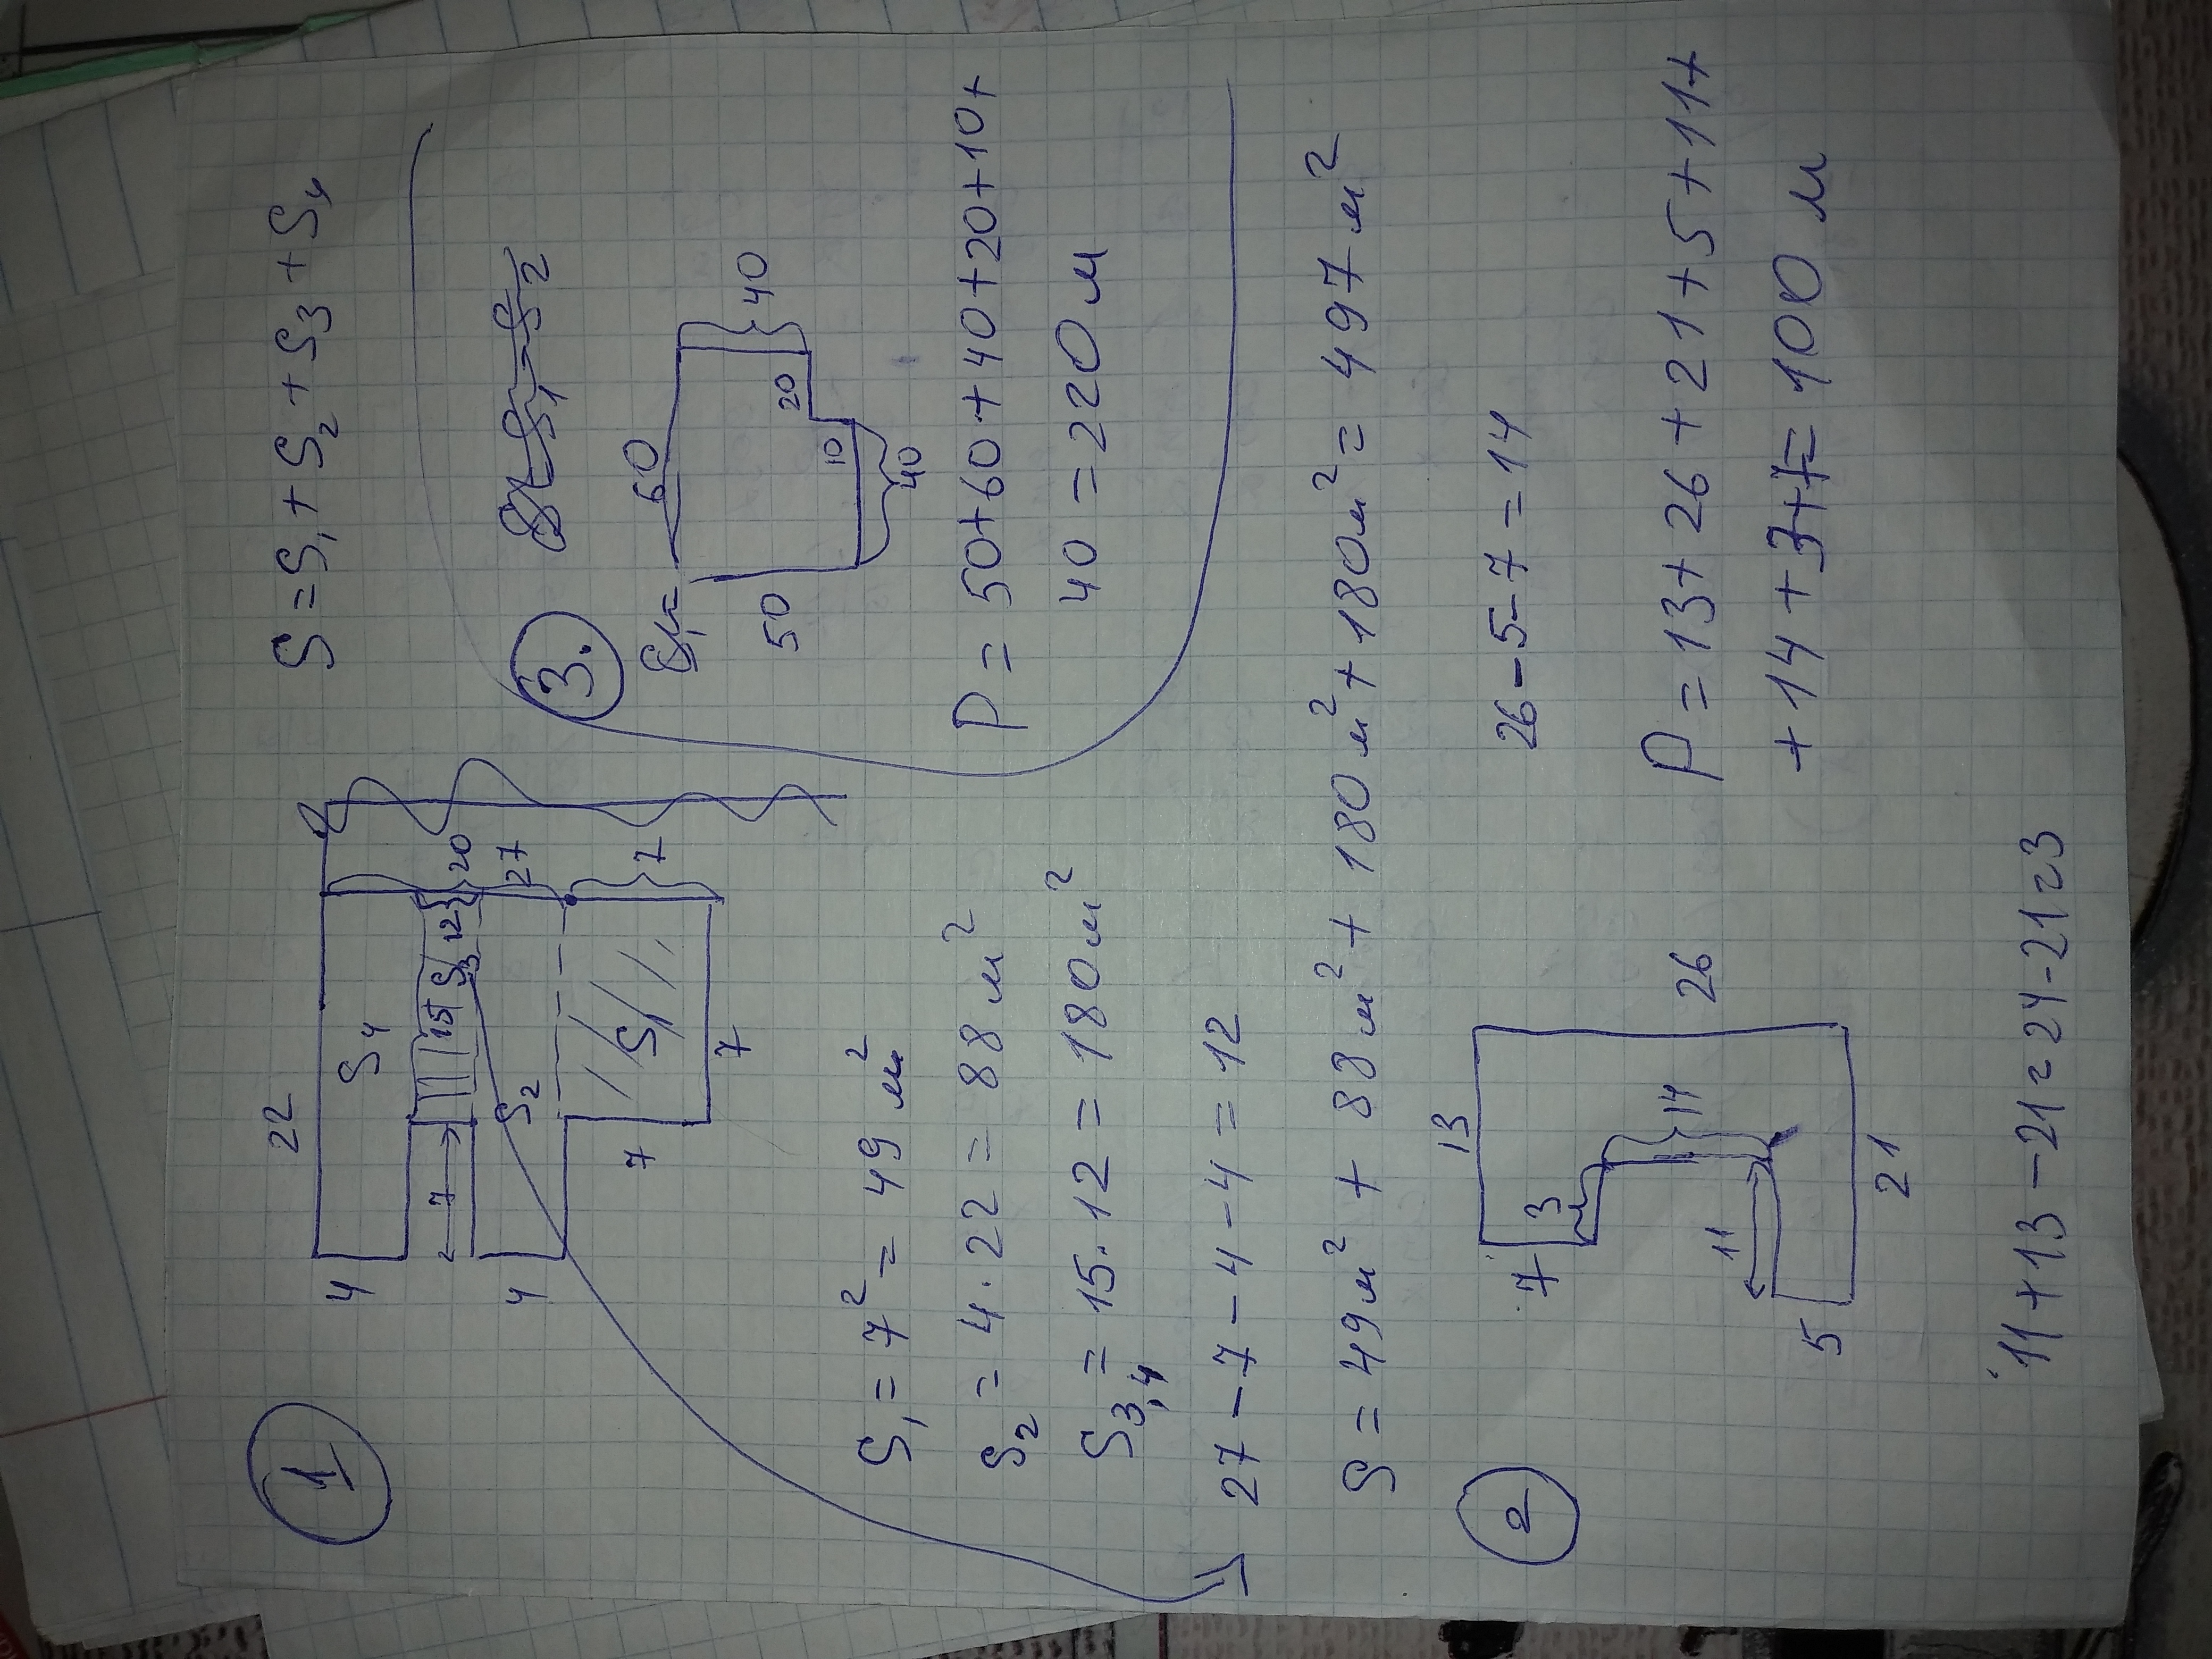 1
22
4
S4
7
15
S3
12
20
27
4
S2
7
S1
7
7
S = S1 + S2 + S3 + S4
S1 = 7² = 49 м²
S2 = 4 · 22 = 88 м²
S3,4 = 15 · 12 = 180 м²
27 - 7 - 4 - 4 = 12
S = 49 м² + 88 м² + 180 м² + 180 м² = 497 м²
3.
S1 - S2
60
50
40
20
10
40
P = 50 + 60 + 40 + 20 + 10 +
40 = 220 м
2
13
7
3
26
14
11
5
21
26 - 5 - 7 = 14
P = 13 + 26 + 21 + 5 + 11 +
+ 14 + 3 + 7 = 100 м
11 + 13 - 21 = 24 - 21 = 3